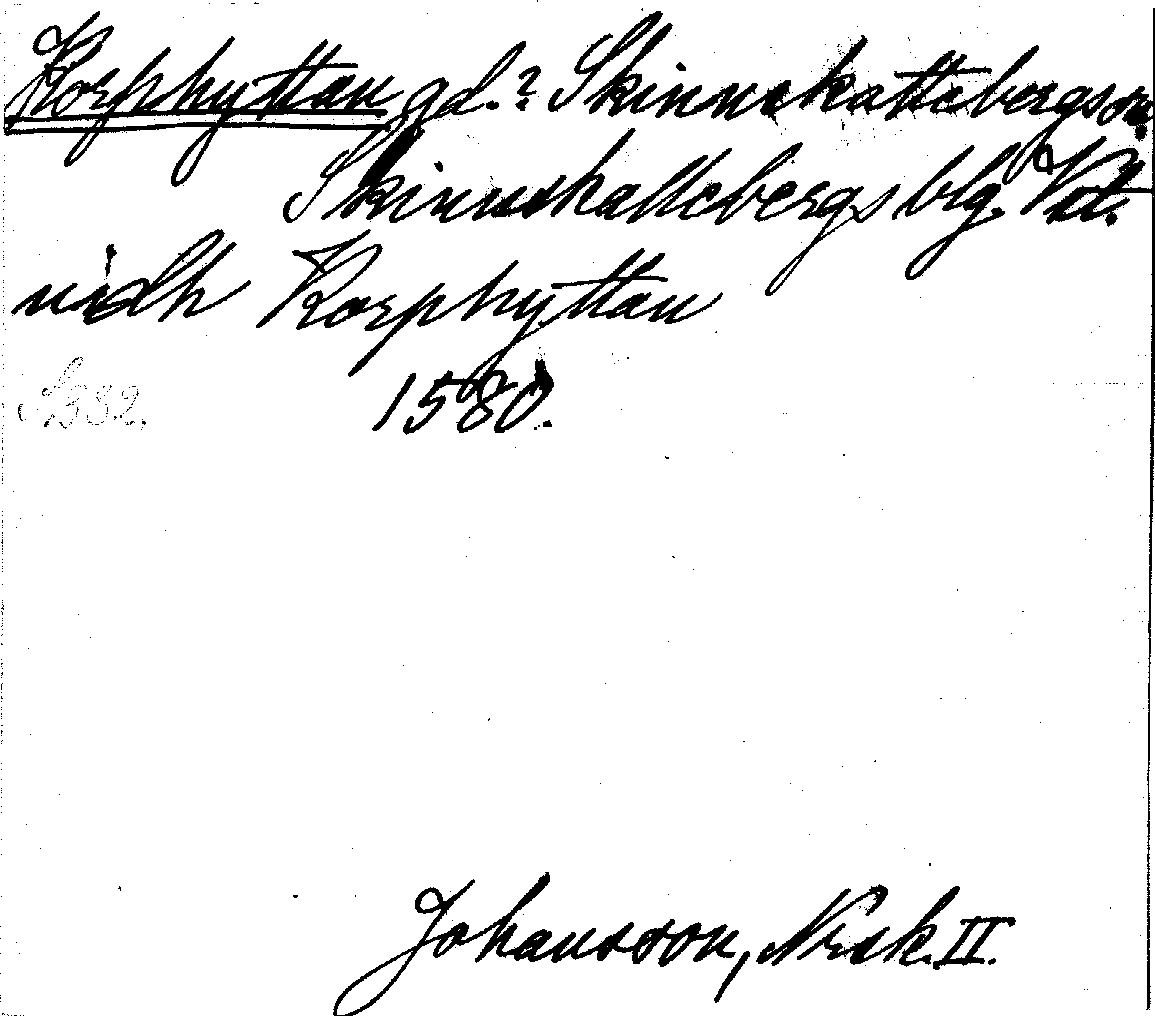 Korphyttan gd.? Skinnskattebergs sn.
Skinnskattebergs blg. Vstm.
vidh Korphyttan
S. 332. 1580.
Johansson, Norsk. II.